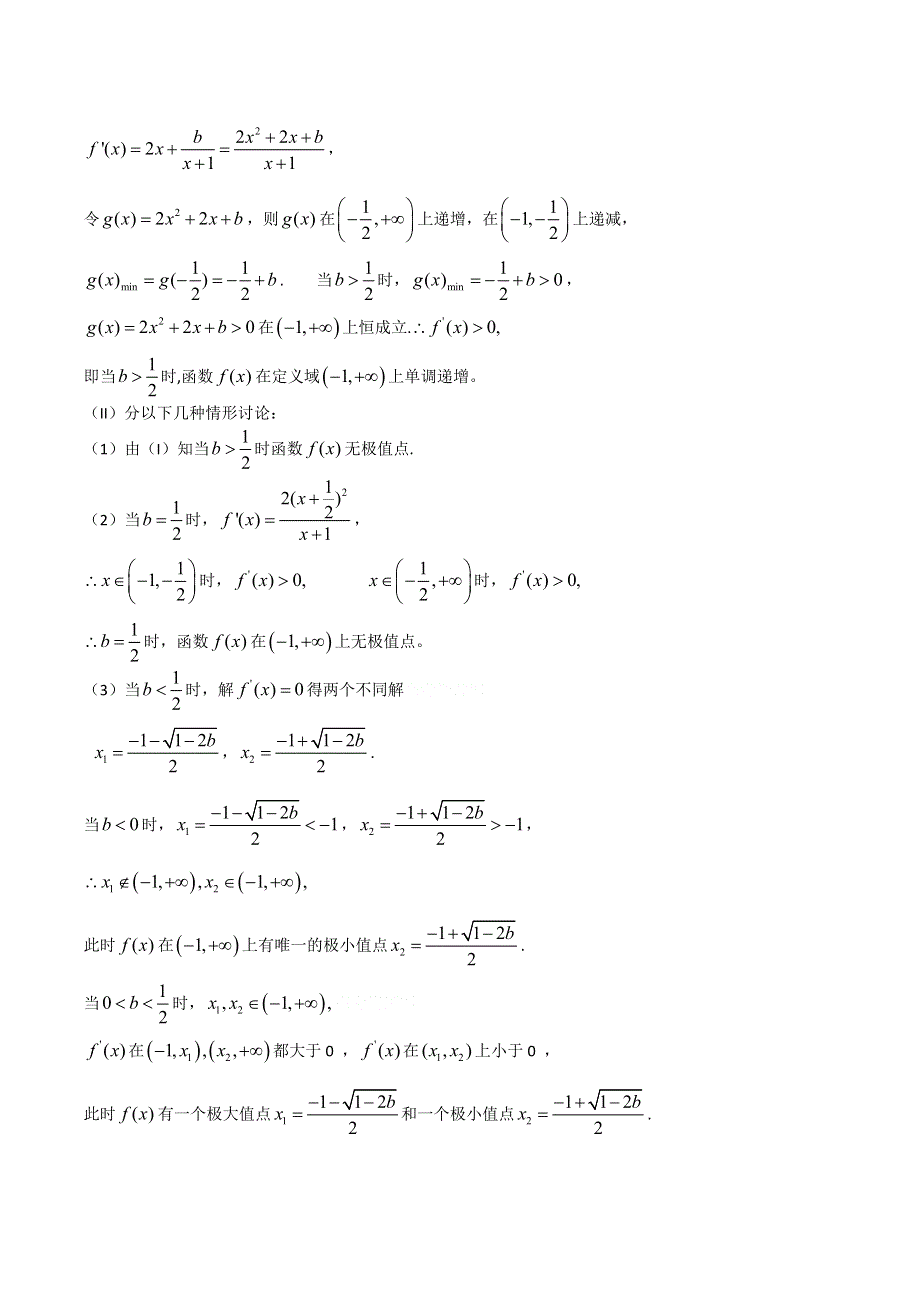 f'(x)=2x+\frac{b}{x+1}=\frac{2x^2+2x+b}{x+1},
令g(x)=2x^2+2x+b，则g(x)在\left(-\frac{1}{2},+\infty\right)上递增，在\left(-1,-\frac{1}{2}\right)上递减，
g(x)_{min}=g(-\frac{1}{2})=-\frac{1}{2}+b. 当b>\frac{1}{2}时，g(x)_{min}=-\frac{1}{2}+b>0，
g(x)=2x^2+2x+b>0在(-1,+∞)上恒成立.∴f'(x)>0,
即当b>\frac{1}{2}时,函数f(x)在定义域(-1,+∞)上单调递增。
（II）分以下几种情形讨论：
（1）由（I）知当b>\frac{1}{2}时函数f(x)无极值点.
（2）当b=\frac{1}{2}时，f'(x)=\frac{2(x+\frac{1}{2})^2}{x+1}，
∴x∈\left(-1,-\frac{1}{2}\right)时，f'(x)>0, x∈\left(-\frac{1}{2},+∞\right)时，f'(x)>0,
∴b=\frac{1}{2}时，函数f(x)在(-1,+∞)上无极值点。
（3）当b<\frac{1}{2}时，解f'(x)=0得两个不同解
x_1=\frac{-1-\sqrt{1-2b}}{2}，x_2=\frac{-1+\sqrt{1-2b}}{2}.
当b<0时，x_1=\frac{-1-\sqrt{1-2b}}{2}<-1，x_2=\frac{-1+\sqrt{1-2b}}{2}>-1，
∴x_1∉(-1,+∞),x_2∈(-1,+∞),
此时f(x)在(-1,+∞)上有唯一的极小值点x_2=\frac{-1+\sqrt{1-2b}}{2}.
当0<b<\frac{1}{2}时，x_1,x_2∈(-1,+∞),
f'(x)在(-1,x_1),(x_2,+∞)都大于0 ，f'(x)在(x_1,x_2)上小于0 ，
此时f(x)有一个极大值点x_1=\frac{-1-\sqrt{1-2b}}{2}和一个极小值点x_2=\frac{-1+\sqrt{1-2b}}{2}.